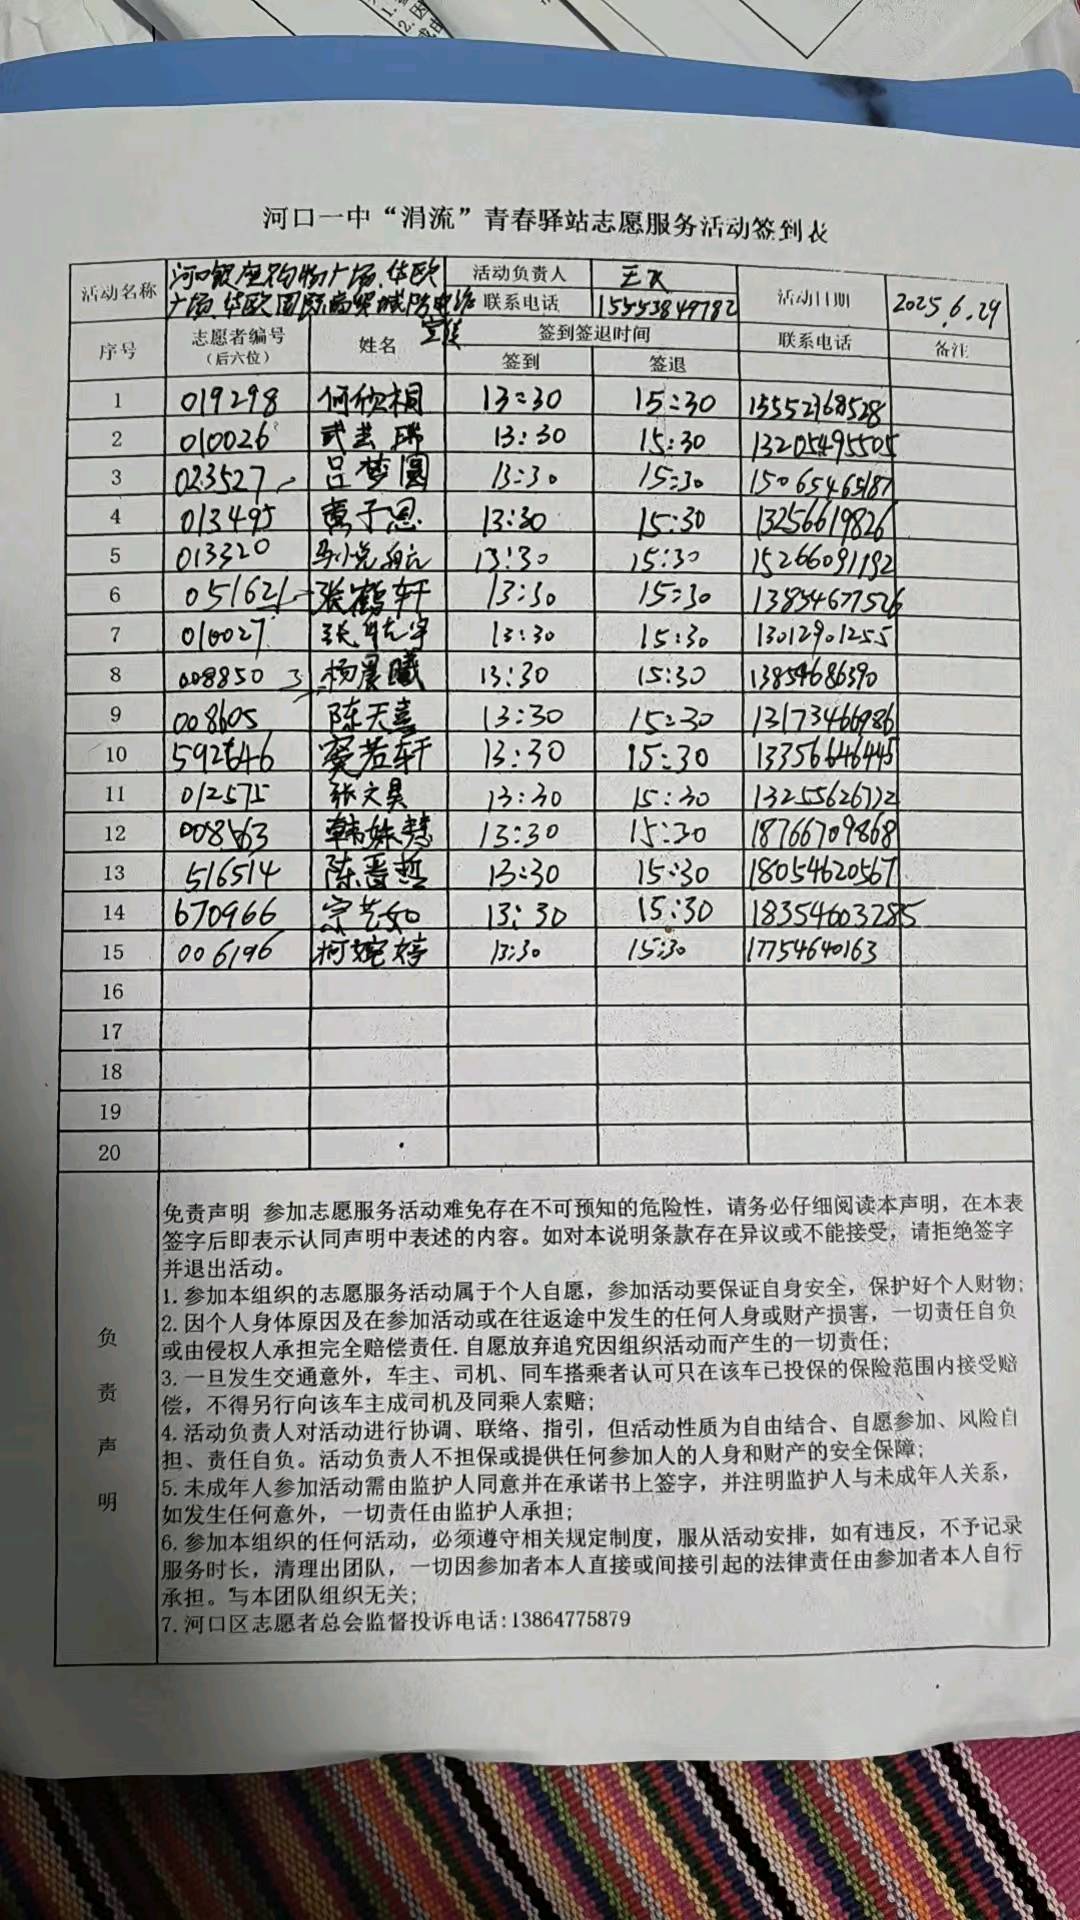 河口一中“涓流”青春驿站志愿服务活动签到表
活动名称 河口银座购物广场、华欧广场、华欧国际商贸城防电诈宣传 活动负责人 联系电话 15553849782 活动日期 2025.6.29
序号 志愿者编号（后六位） 姓名 签到签退时间 联系电话 备注
签到 签退
1 019298 何欣桐 13:30 15:30 15552368528
2 010026 武芸 13:30 15:30 13205495505
3 023527 吕梦圆 13:30 15:30 15065465187
4 013495 子恩 13:30 15:30 13256619826
5 013320 13:30 15:30 15266091192
6 051621 张鹤轩 13:30 15:30 13854677526
7 010027 张 宇 13:30 15:30 13012901255
8 008850 杨晨曦 13:30 15:30 13854686390
9 008605 陈天喜 13:30 15:30 13173466986
10 592646 若轩 13:30 15:30 13356646445
11 012575 张文昊 13:30 15:30 13255626772
12 008563 韩姝慧 13:30 15:30 18766709868
13 516514 陈晋哲 13:30 15:30 18054620567
14 670966 宗艺如 13:30 15:30 18354603285
15 006196 柯婉婷 13:30 15:30 17754640163
16
17
18
19
20
负责声明
免责声明 参加志愿服务活动难免存在不可预知的危险性，请务必仔细阅读本声明，在本表
签字后即表示认同声明中表述的内容。如对本说明条款存在异议或不能接受，请拒绝签字
并退出活动。
1.参加本组织的志愿服务活动属于个人自愿，参加活动要保证自身安全，保护好个人财物;
2.因个人身体原因及在参加活动或在往返途中发生的任何人身或财产损害，一切责任自负
或由侵权人承担完全赔偿责任.自愿放弃追究因组织活动而产生的一切责任;
3.一旦发生交通意外，车主、司机、同车搭乘者认可只在该车已投保的保险范围内接受赔
偿，不得另行向该车主成司机及同乘人索赔;
4.活动负责人对活动进行协调、联络、指引，但活动性质为自由结合、自愿参加、风险自
担、责任自负。活动负责人不担保或提供任何参加人的人身和财产的安全保障;
5.未成年人参加活动需由监护人同意并在承诺书上签字，并注明监护人与未成年人关系，
如发生任何意外，一切责任由监护人承担;
6.参加本组织的任何活动，必须遵守相关规定制度，服从活动安排，如有违反，不予记录
服务时长，清理出团队，一切因参加者本人直接或间接引起的法律责任由参加者本人自行
承担。与本团队组织无关;
7.河口区志愿者总会监督投诉电话:13864775879